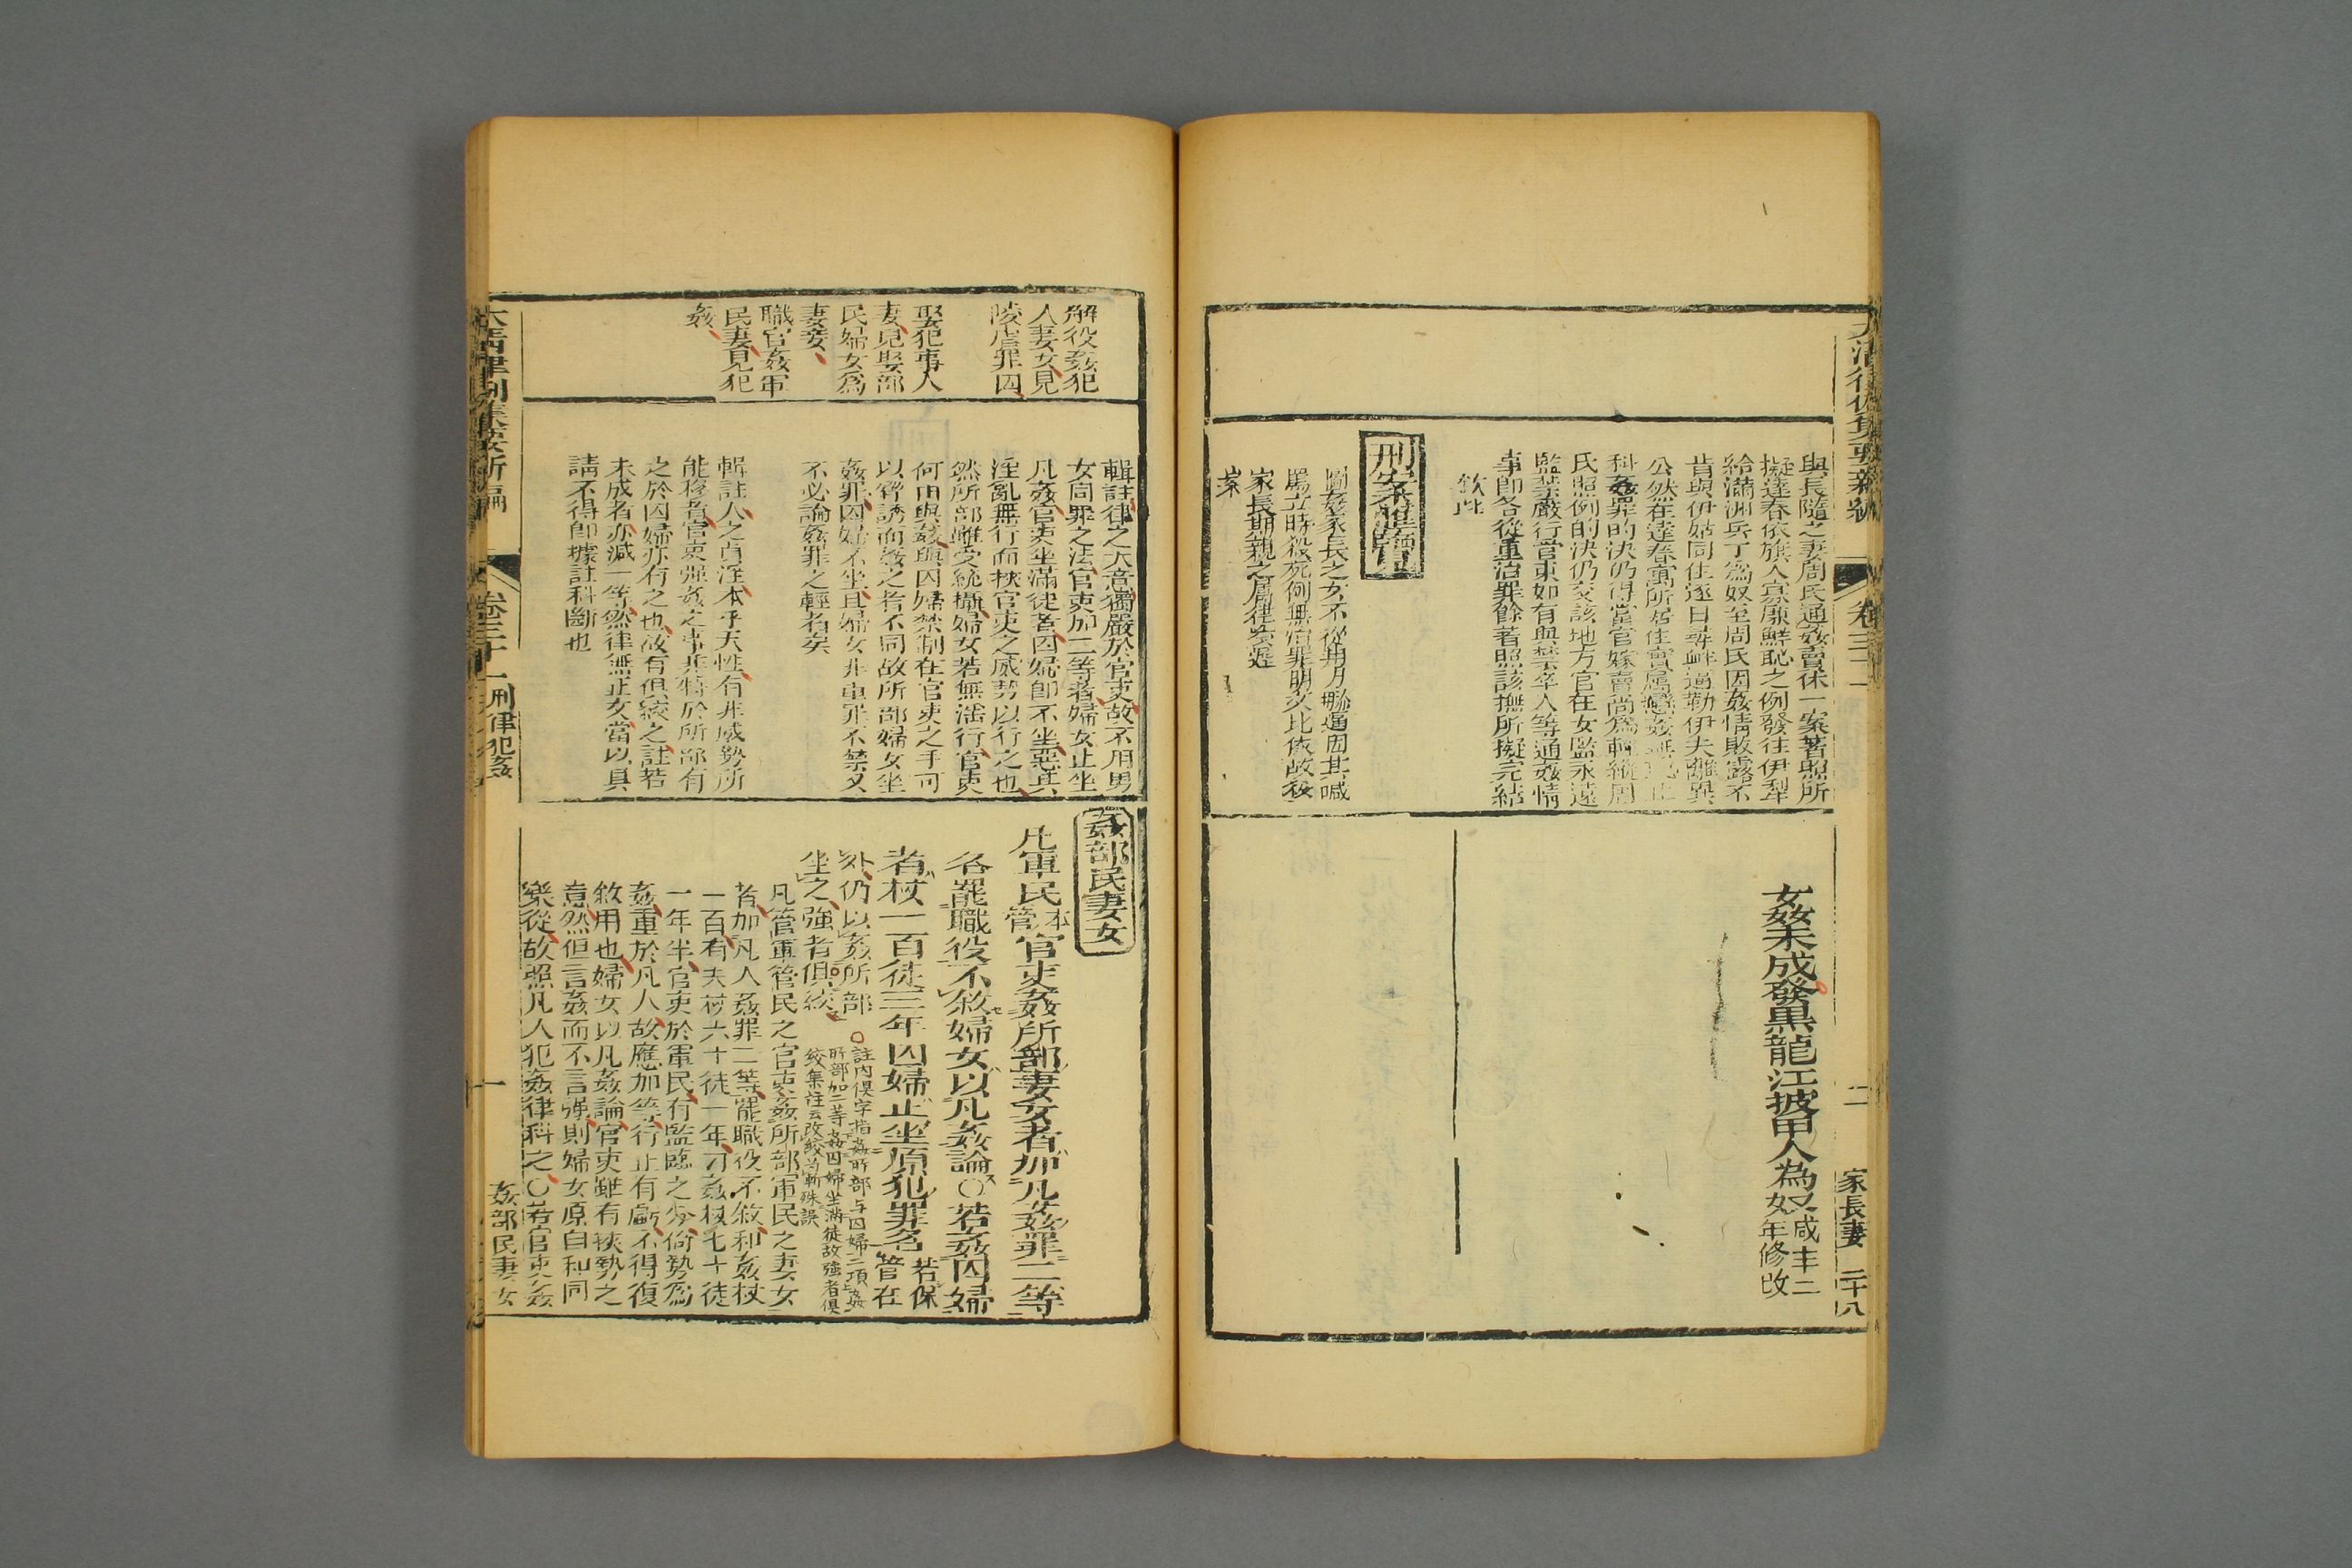 大清律例集要新編
卷三十一
家長妻
二十八
與長隨之妻周氏通姦賣休一案著照所
擬達春依旗人寡廉鮮恥之例發往伊犁
給滿洲兵丁為奴至周氏因姦情敗露不
肯與伊姑同住逐日尋衅逼勒伊夫離異
公然在達春寓所居住實屬戀姦無恥止
科姦罪的決仍得當官嫁賣尚為輕縱周
氏照例的決仍交該地方官在女監永遠
監禁嚴行管束如有與禁卒人等通姦情
事即各從重治罪餘著照該撫所擬完結
欽此
刑案滙覽
圖姦家長之女不從
罵立時殺死例無治罪明文比依故殺
家長期親之屬律凌遲
案
女姦未成發黑龍江披甲人為奴咸丰二
年修改
解役姦犯
人妻女見
陵虐罪囚
娶犯事人
妻見娶部
民婦女為
妻妾
職官姦軍
民妻見犯
姦
輯註律之大意獨嚴於官吏故不用男
女同罪之法官吏加二等者婦女止坐
凡姦官吏坐滿徒者囚婦即不坐惡其
淫亂無行而挾官吏之威勢以行之也
然所部雖受統攝婦女若無淫行官吏
何由與姦與囚婦禁制在官吏之手可
以脅誘而姦之者不同故所部婦女坐
姦罪囚婦不坐且婦女非重罪不禁又
不必論姦罪之輕者矣
輯註人之貞淫本乎天性有非威勢所
能移者官吏强姦之事非特於所部有
之於囚婦亦有之也故有俱絞之註若
未成者亦減一等然律無正文當以具
請不得即據註科斷也
姦部民妻女
凡軍民本管官吏姦所部妻女者加凡姦罪二等
各罷職役不敘婦女以凡姦論○若姦囚婦
者杖一百徒三年囚婦止坐原犯罪名若保管在
外仍以姦所部
坐之强者俱絞
註內俱字指姦所部与囚婦二項姦
所部加二等姦囚婦坐滿徒故强者俱
絞集註云改絞為斬殊誤
凡管軍管民之官吏姦所部軍民之妻女
者加凡人姦罪二等罷職役不敘和姦杖
一百有夫杖六十徒一年刁姦杖七十徒
一年半官吏於軍民有監臨之分倚勢為
姦重於凡人故應加等行止有虧不得復
敘用也婦女以凡姦論官吏雖有挾勢之
意然但言姦而不言强則婦女原自和同
樂從故照凡人犯姦律科之○若官吏姦
大清律例集要新編
卷三十一
刑律犯姦
姦部民妻女